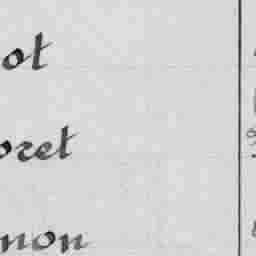 ot
oret
non